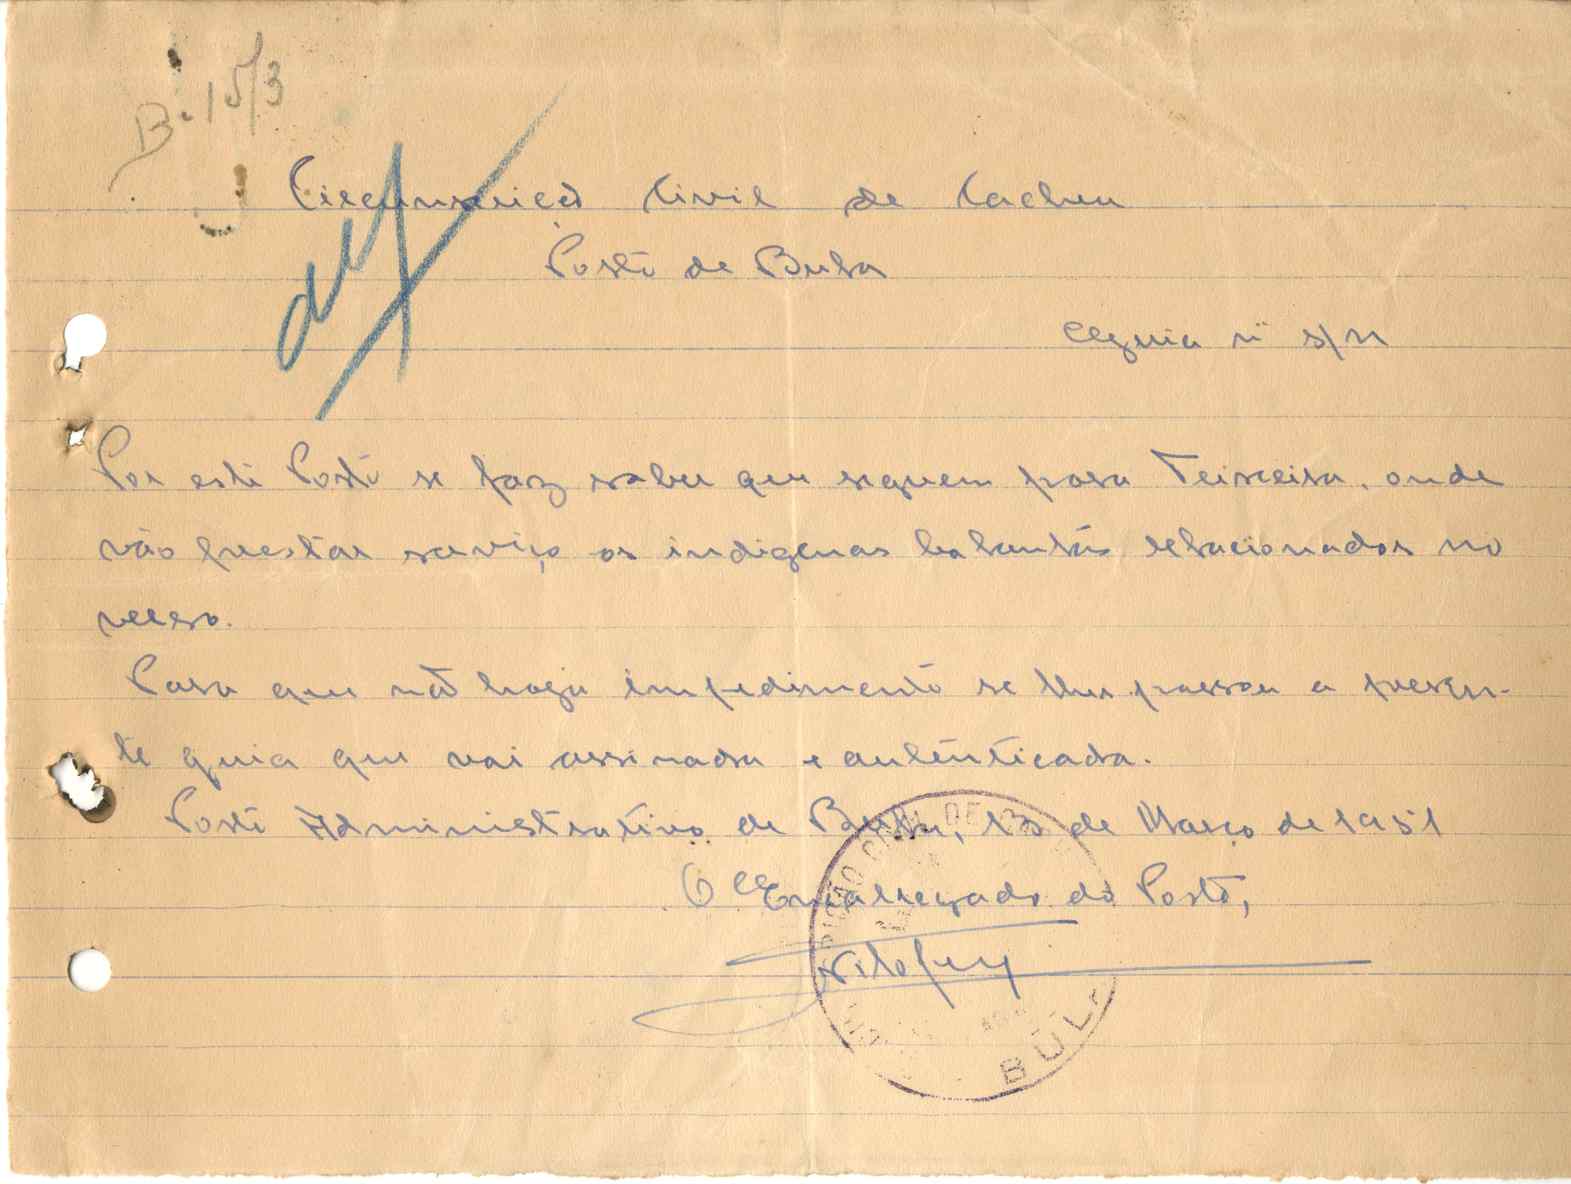 B. 15/3
Circunscriçã Civil de Cacheu
Posto de Bula
Guia nº s/n
Por este Posto se faz saber que seguem para Teixeira, onde
vão prestar serviço os indigenas balantas relacionados no
verso.
Para que não haja impedimento se lhes passou a presen-
te guia que vai assinada e autênticada.
Posto Administrativo de Bula, 13 de Março de 1951
O Encarregado do Posto,
BUL